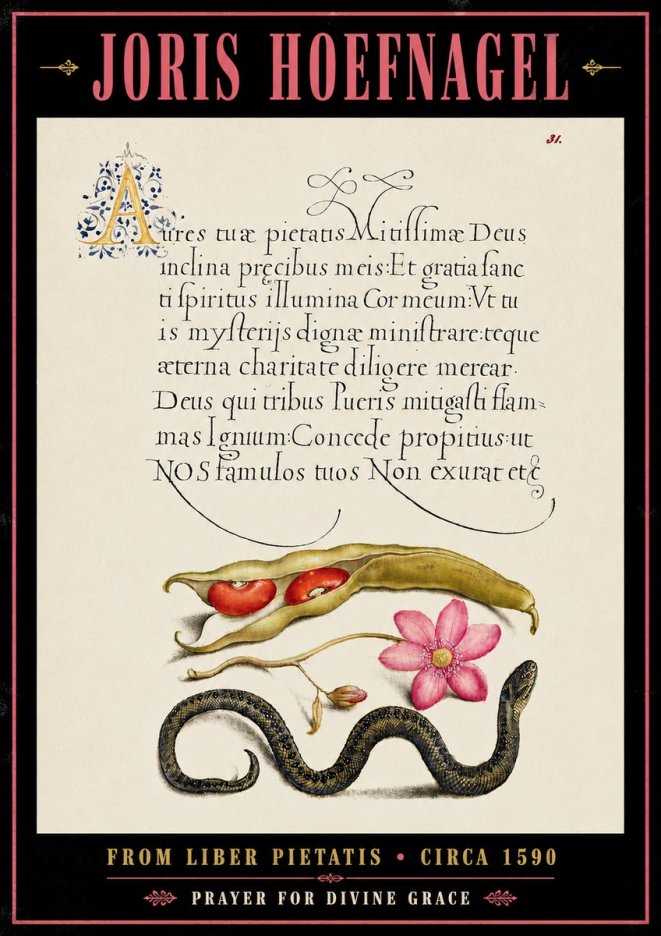 JORIS HOEFNAGEL
31.
Aures tuæ pietatis Mitissimæ Deus
inclina pręcibus meis: Et gratia sanc
ti spiritus illumina Cor meum: Vt tu
is mysterijs dignæ ministrare: teque
æterna charitate diligere merear.
Deus qui tribus Pueris mitigasti flam=
mas Ignium: Concede propitius: ut
NOS famulos tuos Non exurat etc̃
FROM LIBER PIETATIS • CIRCA 1590
PRAYER FOR DIVINE GRACE